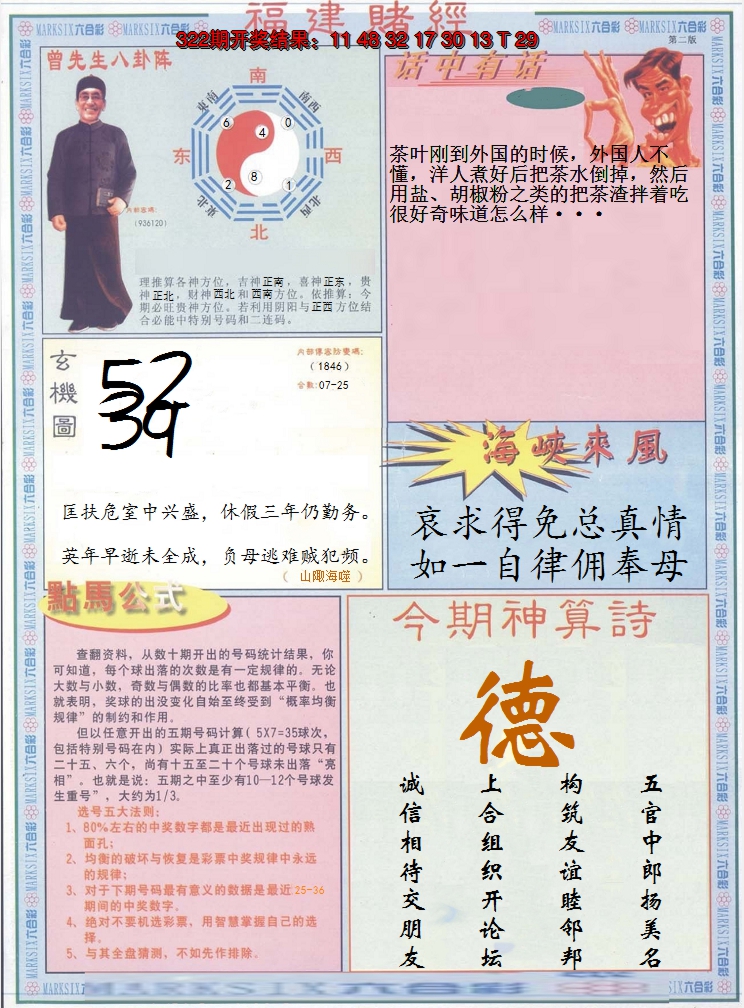 福建賭經
322期开奖结果：11 48 32 17 30 13 T 29
第二版
MARKSIX六合彩
曾先生八卦阵
南
东南
西南
6
4
0
东
西
2
8
1
東北
西北
北
内部密碼：
（936120）
理推算各神方位，吉神正南，喜神正东，贵
神正北，财神西北和西南方位。依推算：今
期必旺贵神方位。若利用阴阳与正西方位结
合必能中特别号码和二连码。
话中有话
茶叶刚到外国的时候，外国人不
懂，洋人煮好后把茶水倒掉，然后
用盐、胡椒粉之类的把茶渣拌着吃
很好奇味道怎么样···
玄機圖
57
39
（1846）
合数：07-25
匡扶危室中兴盛，休假三年仍勤务。
英年早逝未全成，负母逃难贼犯频。
（山陬海噬）
海峽來風
哀求得免总真情
如一自律佣奉母
點馬公式
查翻资料，从数十期开出的号码统计结果，你
可知道，每个球出落的次数是有一定规律的。无论
大数与小数，奇数与偶数的比率也都基本平衡。也
就表明，奖球的出没变化自始至终受到“概率均衡
规律”的制约和作用。
但以任意开出的五期号码计算（5X7=35球次，
包括特别号码在内）实际上真正出落过的号球只有
二十五、六个，尚有十五至二十个号球未出落“亮
相”。也就是说：五期之中至少有10—12个号球发
生重号”，大约为1/3。
选号五大法则：
1、80%左右的中奖数字都是最近出现过的熟
面孔；
2、均衡的破坏与恢复是彩票中奖规律中永远
的规律；
3、对于下期号码最有意义的数据是最近25-36
期间的中奖数字。
4、绝对不要机选彩票，用智慧掌握自己的选
择。
5、与其全盘猜测，不如先作排除。
今期神算詩
德
五官中郎扬美名
构筑友谊睦邻邦
上合组织开论坛
诚信相待交朋友